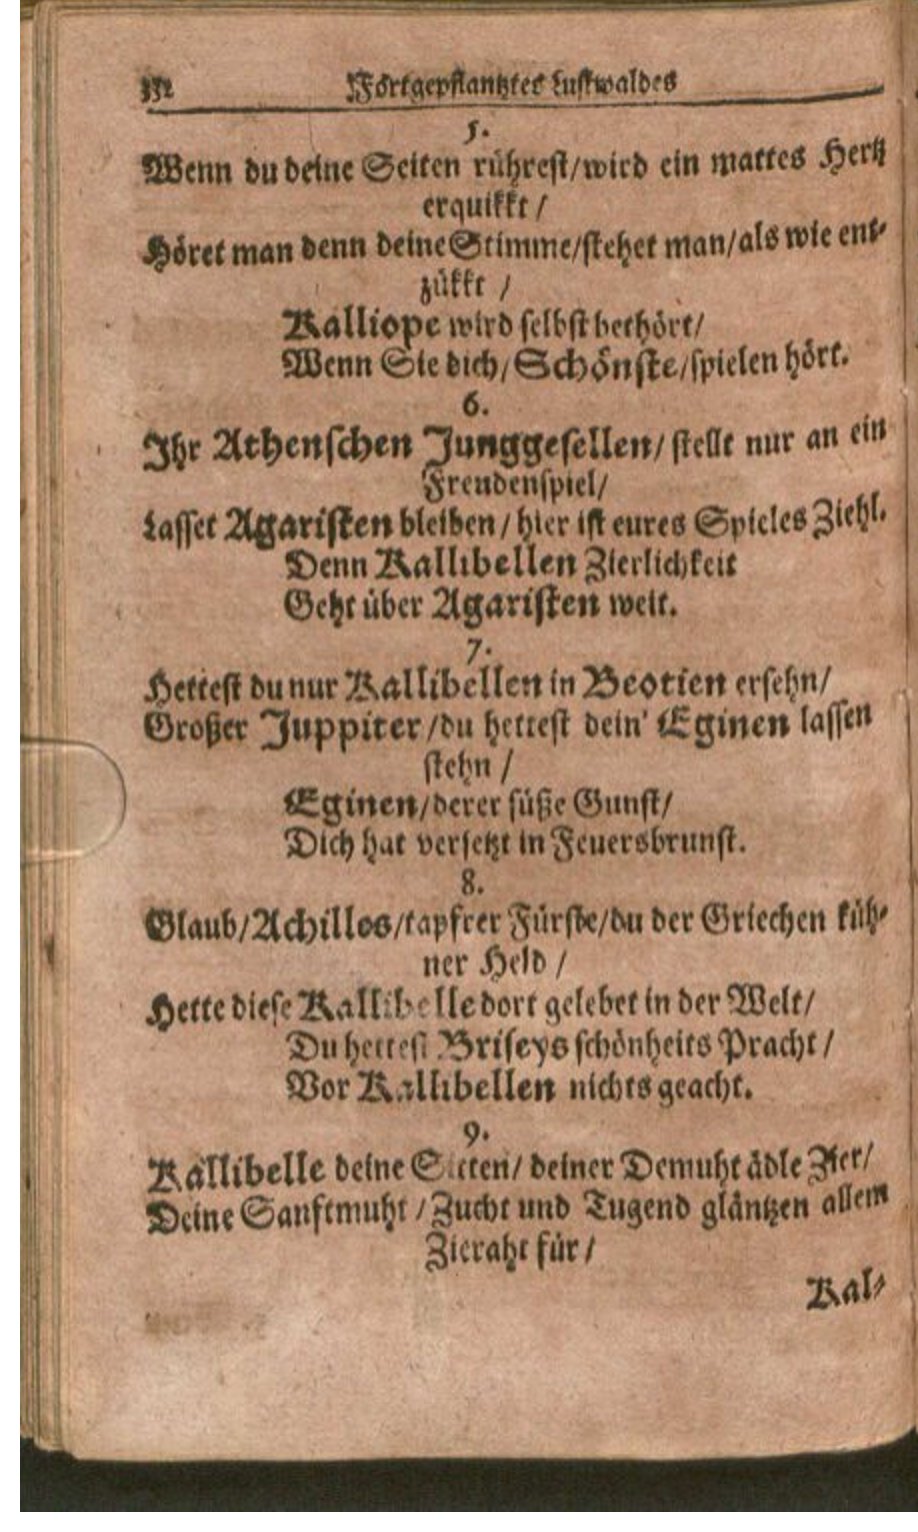 332 Fortgepflantzter Lustwaldes
5.
Wenn du deine Seiten rührest/wird ein mattes Hertz
erquikkt /
Höret man denn deine Stimme/stehet man/als wie ent-
zükkt /
Kalliope wird selbst bethört/
Wenn Sie dich/Schönste/spielen hört.
6.
Ihr Athenschen Junggesellen/ stellt nur an ein
Freudenspiel/
Lasset Agaristen bleiben / hier ist eures Spieles Ziehl.
Denn Kallibellen Zierlichkeit
Geht über Agaristen weit.
7.
Hettest du nur Kallibellen in Beotien ersehn/
Großer Juppiter /du hettest dein' Eginen lassen
stehn /
Eginen/derer süße Gunst/
Dich hat versetzt in Feuersbrunst.
8.
Glaub/Achilles/tapfrer Fürste/du der Griechen küh-
ner Held /
Hette diese Kallibelle dort gelebet in der Welt/
Du hettest Briseys schönheits Pracht /
Vor Kallibellen nichts geacht.
9.
Kallibelle deine Sitten/ deiner Demuht ädle Zier/
Deine Sanftmuht / Zucht und Tugend gläntzen allem
Zieraht für /
Kal-